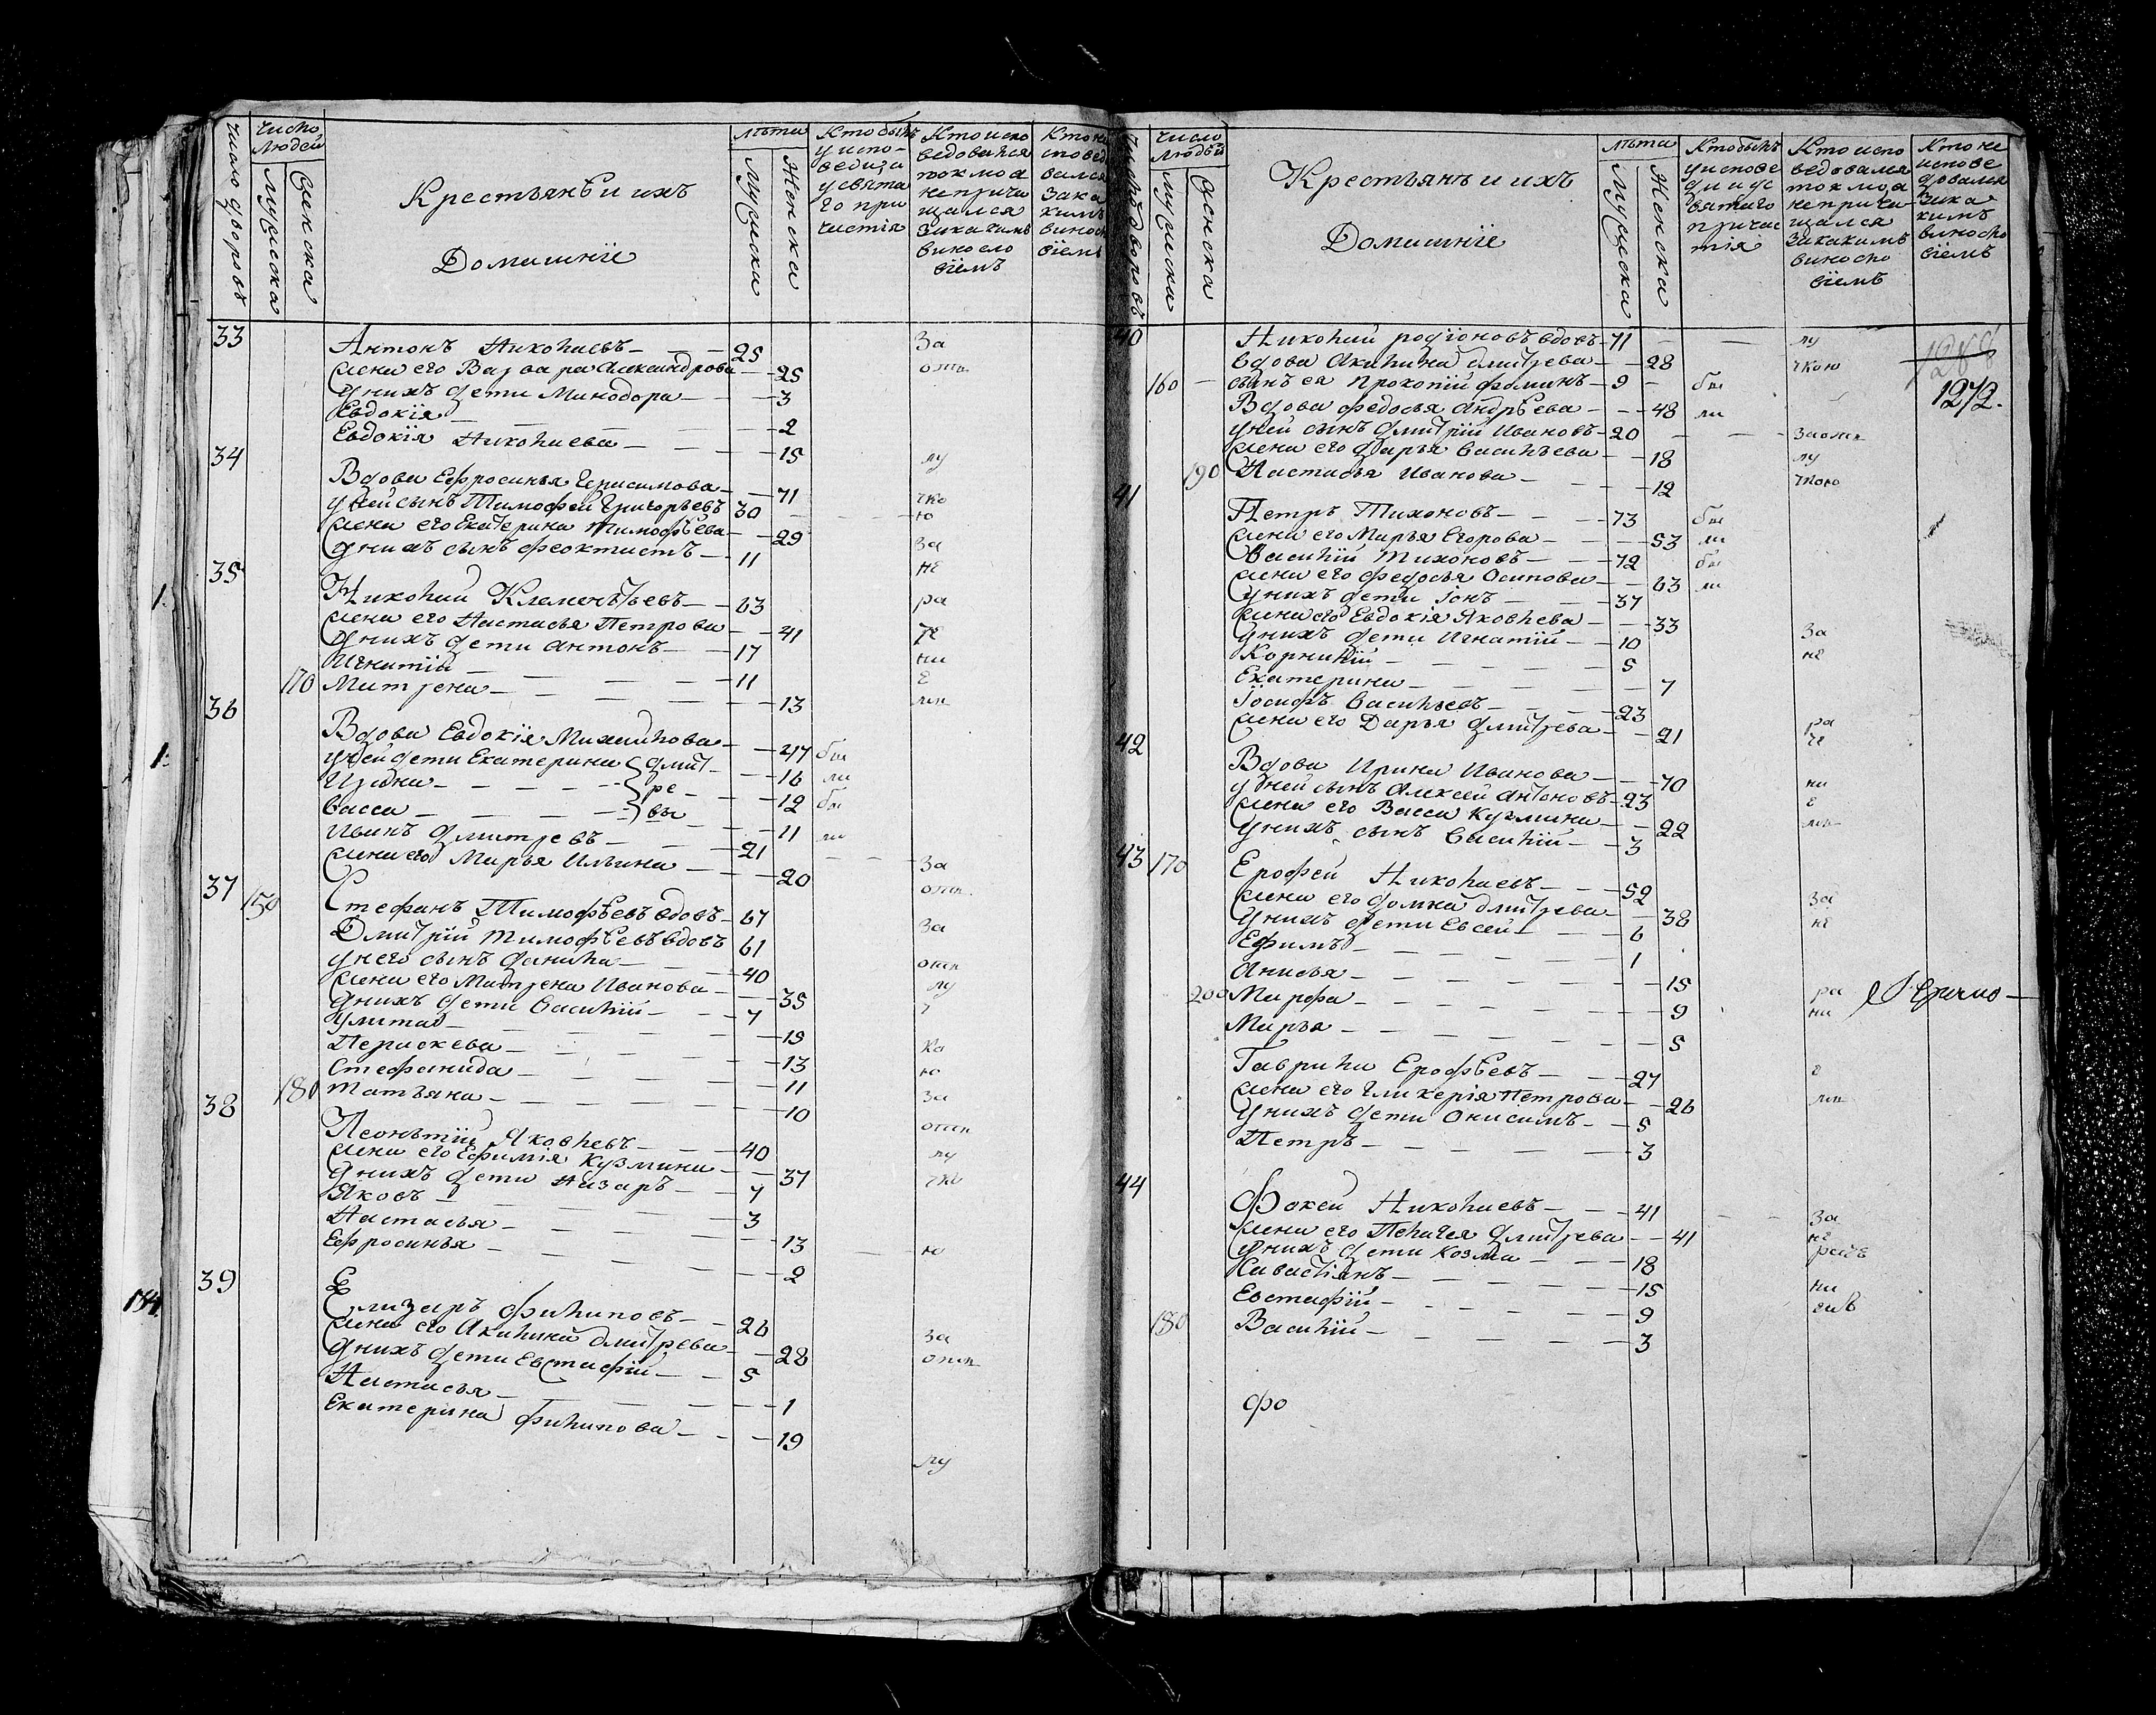 Число дворовъ
Число Людей
Мужеска
Женска
Крестьянѣ и ихъ
Домашнiе
лѣта
Мужеска
Женска
Кто былъ у исповеди, и у святаго причастiя
Кто исповедовался токмо а не причащался и за какимъ винословiемъ
33
Антонъ Николаевъ 25 За
жена его Варвара Александрова 25 отл
у нихъ дети Минодора 3
Евдокiя 2
Евдокiя Николаева 15
34 лу
Вдова Ефросинья Герасимова 71
у ней сынъ Тимофей Григорьевъ 30 чко
жена его Екатерина Тимофѣева 29 ю
у нихъ сынъ Феоктистъ 11 за
35 не
Николай Климентьевъ 63 ра
жена его Настасья Петрова 41
у нихъ дети Антонъ 17
Игнатiй 11 ни
170 Матрена 13 е
36
Вдова Евдокiя Михаилова 47 бы
у ней дети Екатерина Дмит 16 ли
Ирина ре 12 бы
Васса вы 11
Иванъ Дмитревъ 21 ли
жена его Марья Ильина 20 За
37 150
Стефанъ Тимофѣевъ вдовъ 67
Дмитрiй Тимофѣевъ вдовъ 61 За
у него сынъ Данила 40
жена его Матрена Иванова 35 лу
у нихъ дети Василiй 7
Улита 19
Параскева 13 ко
Стефанида 11 ю
180 Татьяна 10 за
38
Леонътiй Яковлевъ 40
жена его Ефимiя Кузмина 37 лу
у нихъ дети Назаръ 7 чко
Яковъ 3
Настасья 13
Ефросинья 2 ю
39
Елизаръ Филиповъ 26
жена его Акилина Дмитрева 28 За
у нихъ дети Евстафiй 5
Настасья 1
Екатерина Филипова 19
лу
1
1
184
Число дворовъ
Число Людей
Мужеска
Женска
Крестьянѣ и ихъ
Домашнiе
лѣта
Мужеска
Женска
Кто былъ у исповеди и у святаго причастiя
Кто исповедовался токмо а не причащался и за какимъ винословiемъ
Кто не исповедовался и за какимъ винословiемъ
40 Николай Родiоновъ вдовъ 71 лу
вдова Акилина Дмитрева 28 чкою
160 сынъ ея Прокопiй Фоминъ 9 бы
1272.
Вдова Федосья Андрѣева 48 ли
у ней сынъ Дмитрiй Ивановъ 20
жена его Дарья Васильева 18 лу
190 Настасья Иванова 12 чкою
41
Петръ Тихоновъ 73 бы
жена его Марья Егорова 53 ли
Василiй Тихоновъ 72 бы
жена его Федосья Осипова 63 ли
у нихъ дети Iонъ 37
жена его Евдокiя Яковлева 33
у нихъ дети Игнатiй 10 За
Корнилiй 5 не
Екатерина 7
Iосифъ Васильевъ 23
жена его Дарья Дмитрева 21 ра
42
Вдова Ирина Иванова 70
у ней сынъ Алексей Антоновъ 23 ни
жена его Васса Кузмина 22 е
у нихъ сынъ Василiй 3
43 170 Ерофей Николаевъ 52
жена его Домна Дмитрева 38 За
у нихъ дети Евсей 6 не
Ефимъ 1
Анисья 15
200 Марфа 9 ра
Марья 5 ни
Гаврила Ерофѣевъ 27
жена его Гликерiя Петрова 26 е
у нихъ дети Онисимъ 5
Петръ 3
44
Фокей Николаевъ 41
жена его Пелагея Дмитрева 41 За
у нихъ дети Козма 18 не
Савастiянъ 15
Евстафiй 9 ни
180 Василiй 3
фо